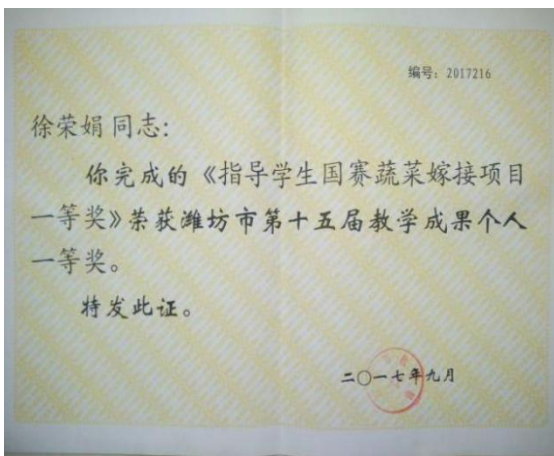 编号：2017216
徐荣娟同志：
你完成的《指导学生国赛蔬菜嫁接项目
一等奖》荣获潍坊市第十五届教学成果个人
一等奖。
特发此证。
二〇一七年九月